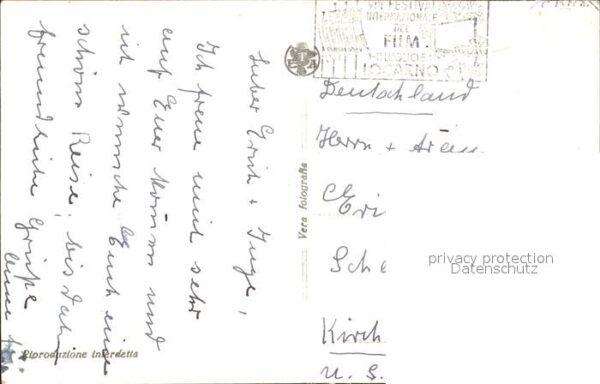 Lieber Erich + Inge,
Ich freue mich sehr
auf Euer kommen und
ich wünsche Euch eine
schöne Reise, bis dahin
freundliche Grüße
Vera fotografia
Riproduzione interdetta
FESTIVAL
INTERNAZIONALE
DEL
FILM
LOCARNO
Deutschland
Herrn +
Eri
Sche
Kirch
u. S.
privacy protection
Datenschutz